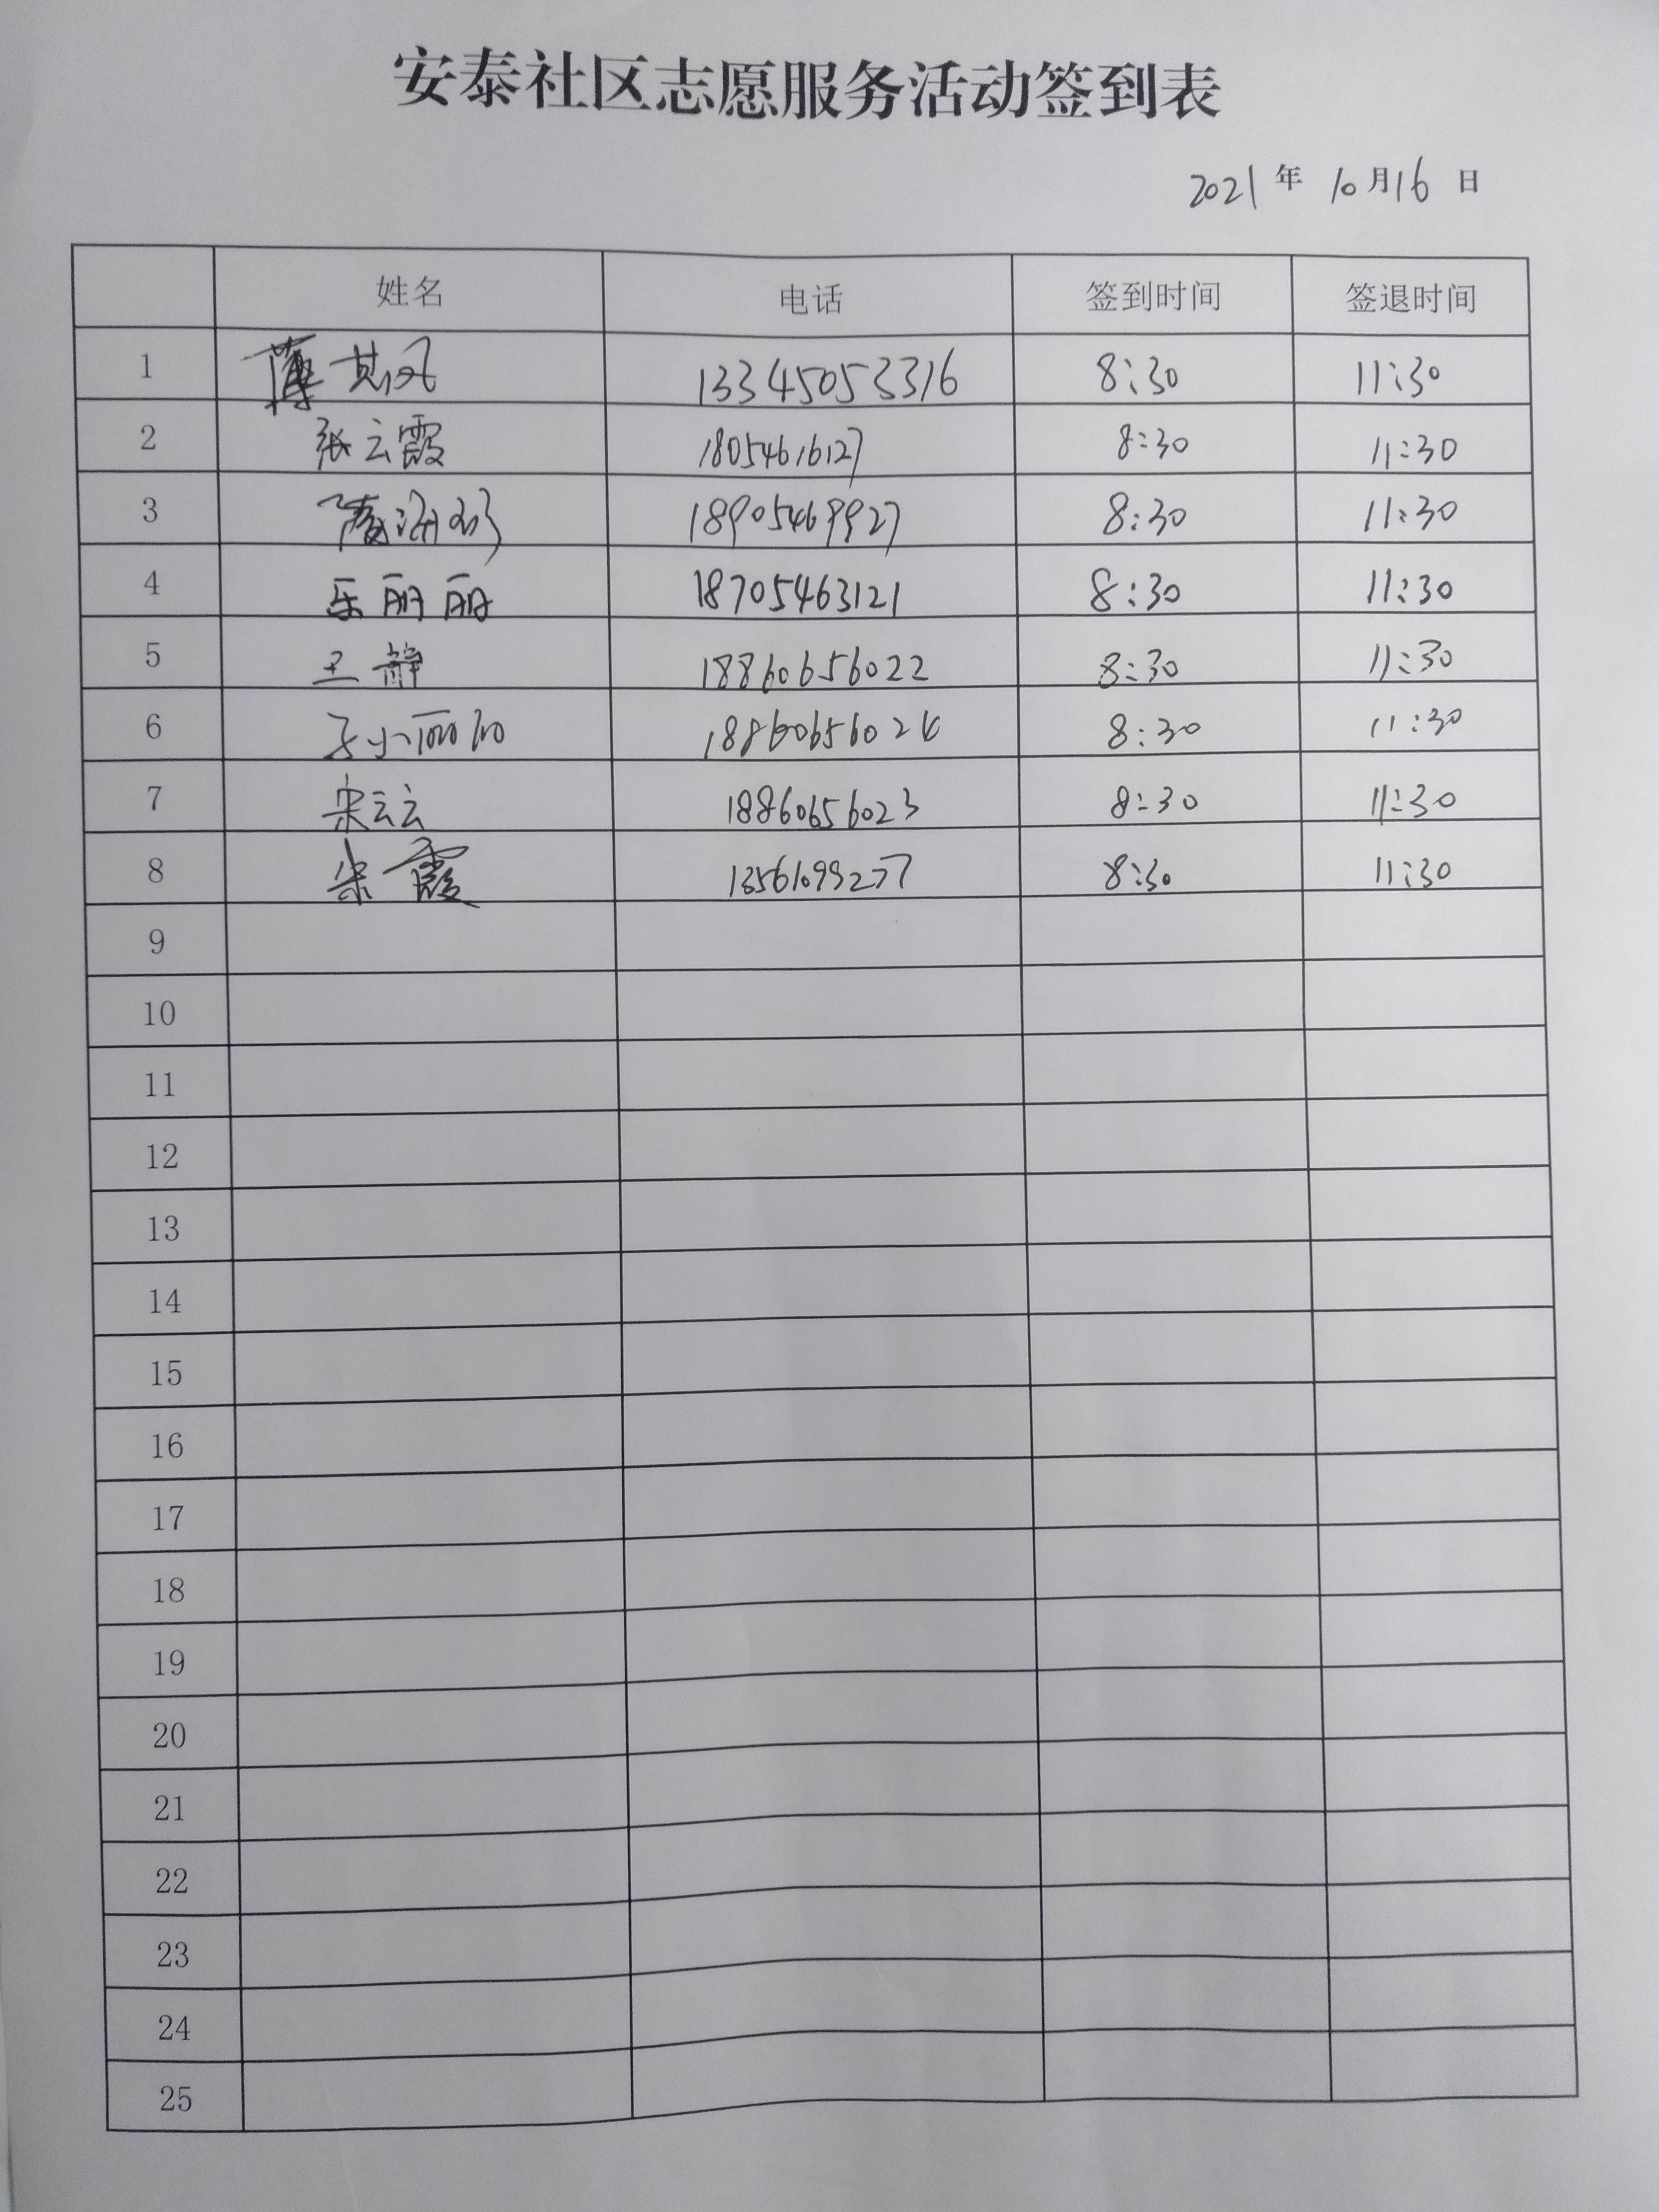 安泰社区志愿服务活动签到表
2021年10月16日
姓名 电话 签到时间 签退时间
1 薄其风 13345053316 8:30 11:30
2 张云霞 18054616127 8:30 11:30
3 18905469927 8:30 11:30
4 乐丽丽 18705463121 8:30 11:30
5 王静 18860656022 8:30 11:30
6 1886065602 8:30 11:30
7 宋云云 18860656023 8:30 11:30
8 宋霞 13561099277 8:30 11:30
9
10
11
12
13
14
15
16
17
18
19
20
21
22
23
24
25